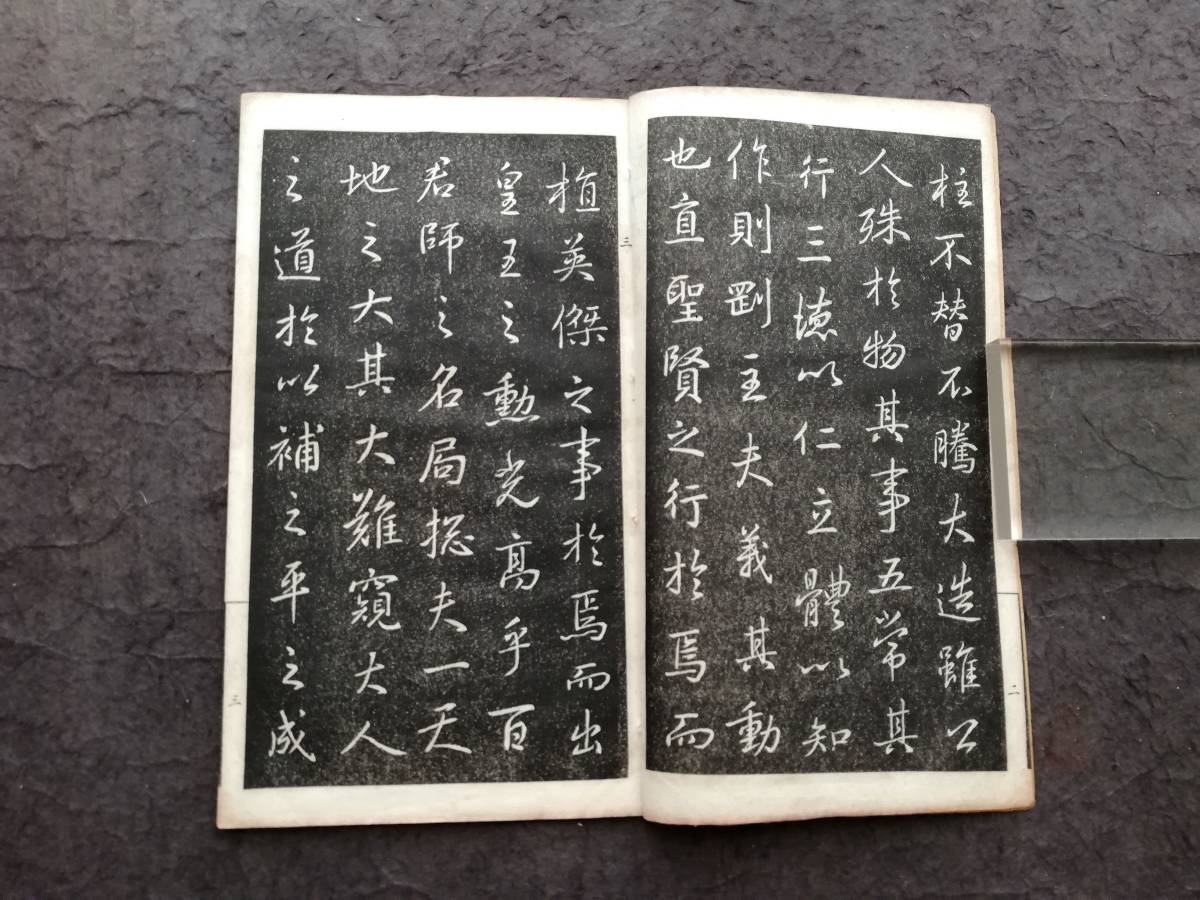 柱不替不騰大造雖公
人殊於物其事五常其
行三德以仁立體以知
作則剛主夫義其動
也直聖賢之行於焉而
二
植英傑之事於焉而出
皇王之勳光高乎百
君師之名局揔夫一天
地之大其大難窺大人
之道於以補之平之成
三
三